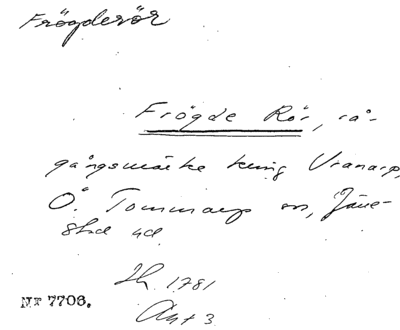 Frögderör
Frögde Rör, rå-
gångsmärke kring Vranarp,
Ö. Tommarp sn, Järre-
stad hd.
1781
Akt 3.
NF 7706.